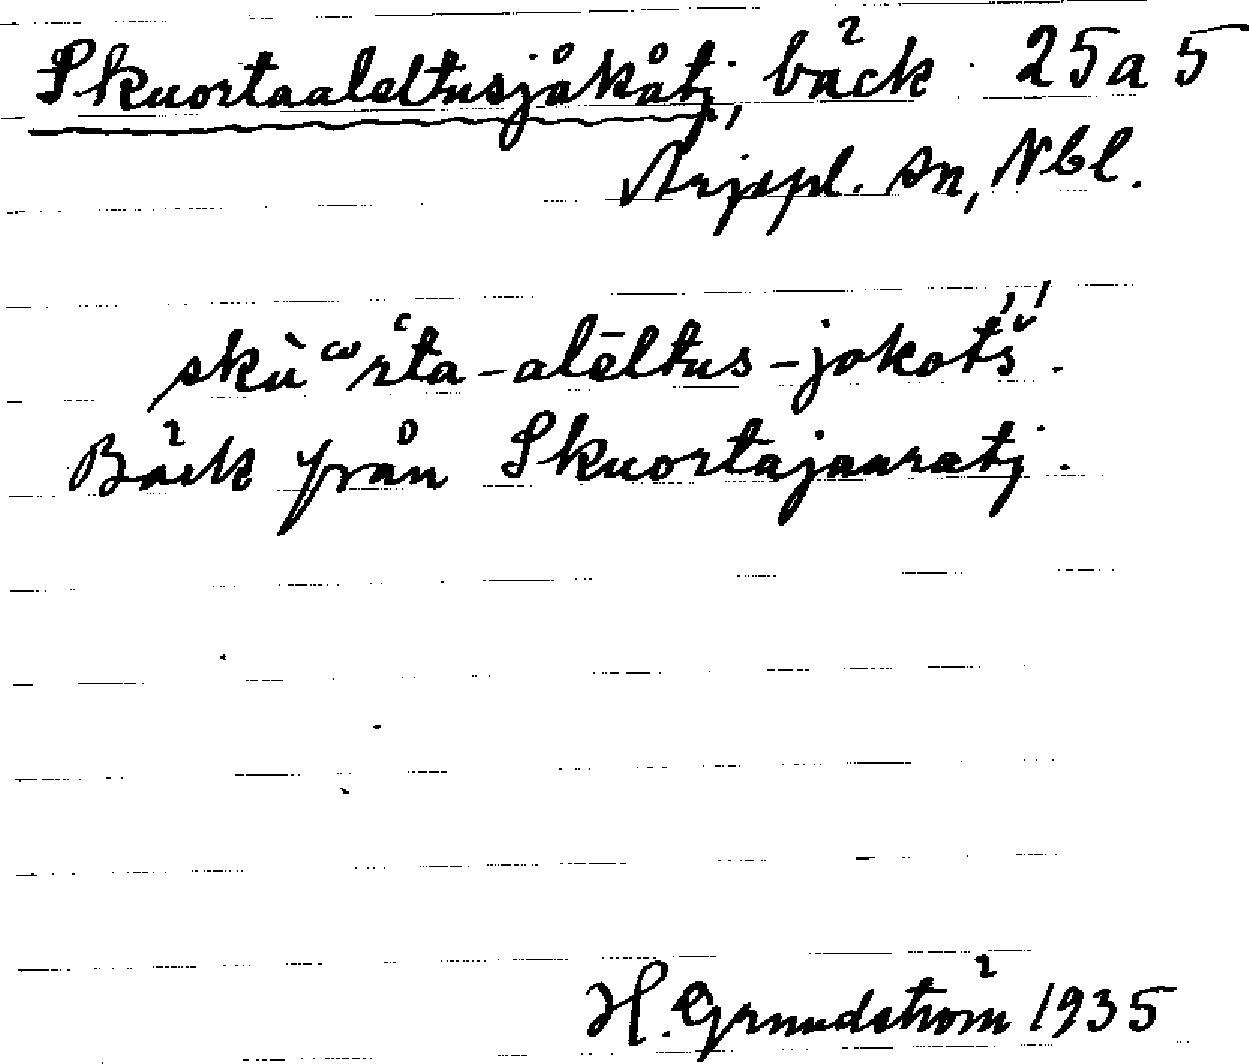 Skuortaaleltusjåkåtj, bäck 25a5
Arjepl. sn, Nbl.
skùωrʿta-alēltus-jokotš́'.
Bäck från Skuortajauratj.
H. Grundström 1935